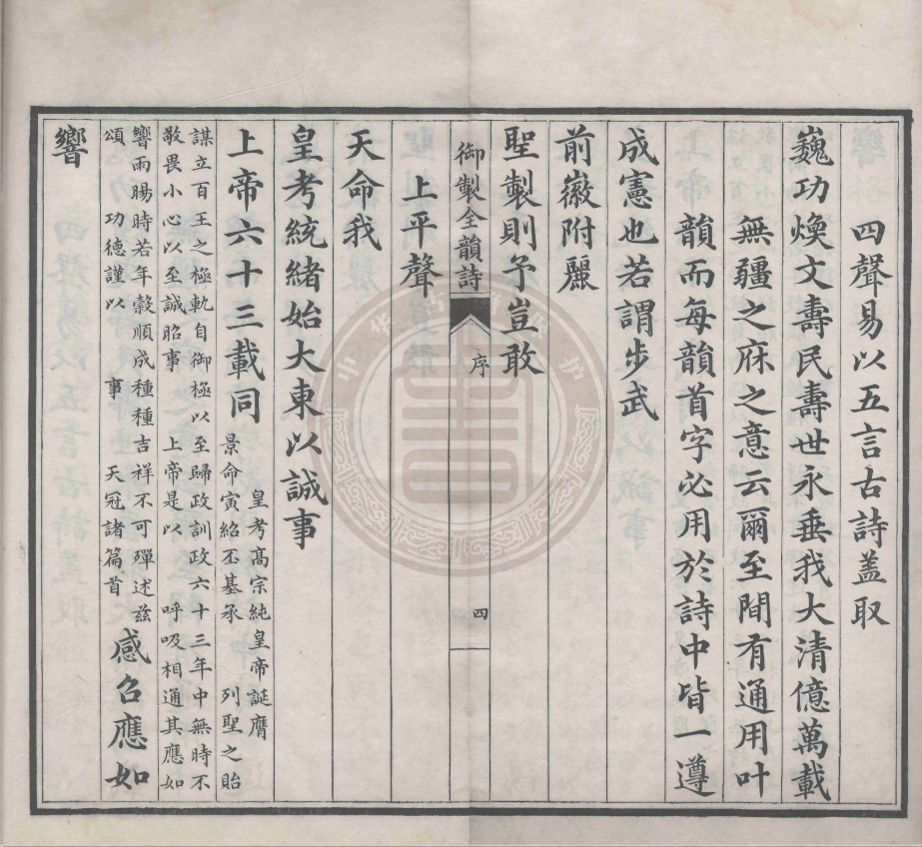 四聲易以五言古詩蓋取
巍功煥文壽民壽世永垂我大清億萬載
無疆之庥之意云爾至閒有通用叶
韻而每韻首字必用於詩中皆一遵
成憲也若謂步武
前徽附麗
聖製則予豈敢
御製全韻詩 序 四
上平聲
天命我
皇考統緒始大東以誠事
上帝六十三載同
皇考高宗純皇帝誕膺
景命寅紹丕基承 列聖之貽
謀立百王之極軌自御極以至歸政訓政六十三年中無時不
敬畏小心以至誠昭事 上帝是以 呼吸相通其應如
響雨暘時若年穀順成種種吉祥不可殫述茲
頌 功德謹以 事 天冠諸篇首
感召應如
響